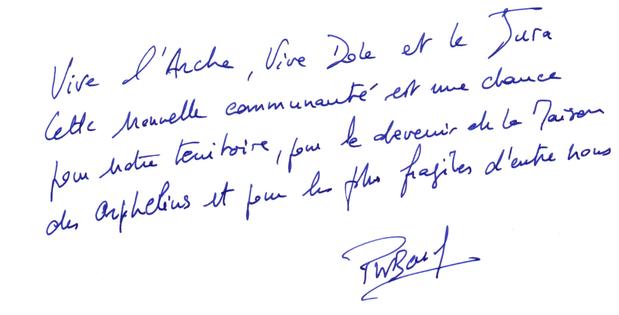 Vive l'Arche, Vive Dole et le Jura
Cette nouvelle communauté est une chance
pour notre territoire, pour le devenir de la Maison
des orphelins et pour les plus fragiles d'entre nous